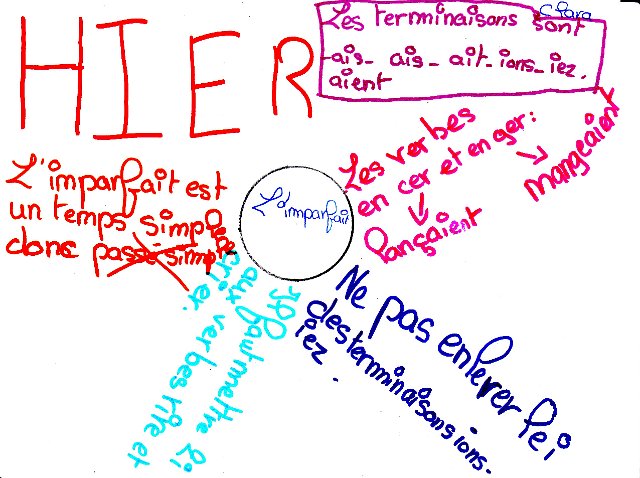 HIER
Clara
Les terminaisons sont
-ais- ais- ait- ions- iez.
aient
Les verbes
en cer et en ger:
↓
lançaient
→
mangeaient
L'imparfait
L'imparfait est
un temps simple
donc passé simple
Il faut mettre li
aux verbes rire et
crier.
Ne pas enlever le i
des terminaisons ions.
iez.